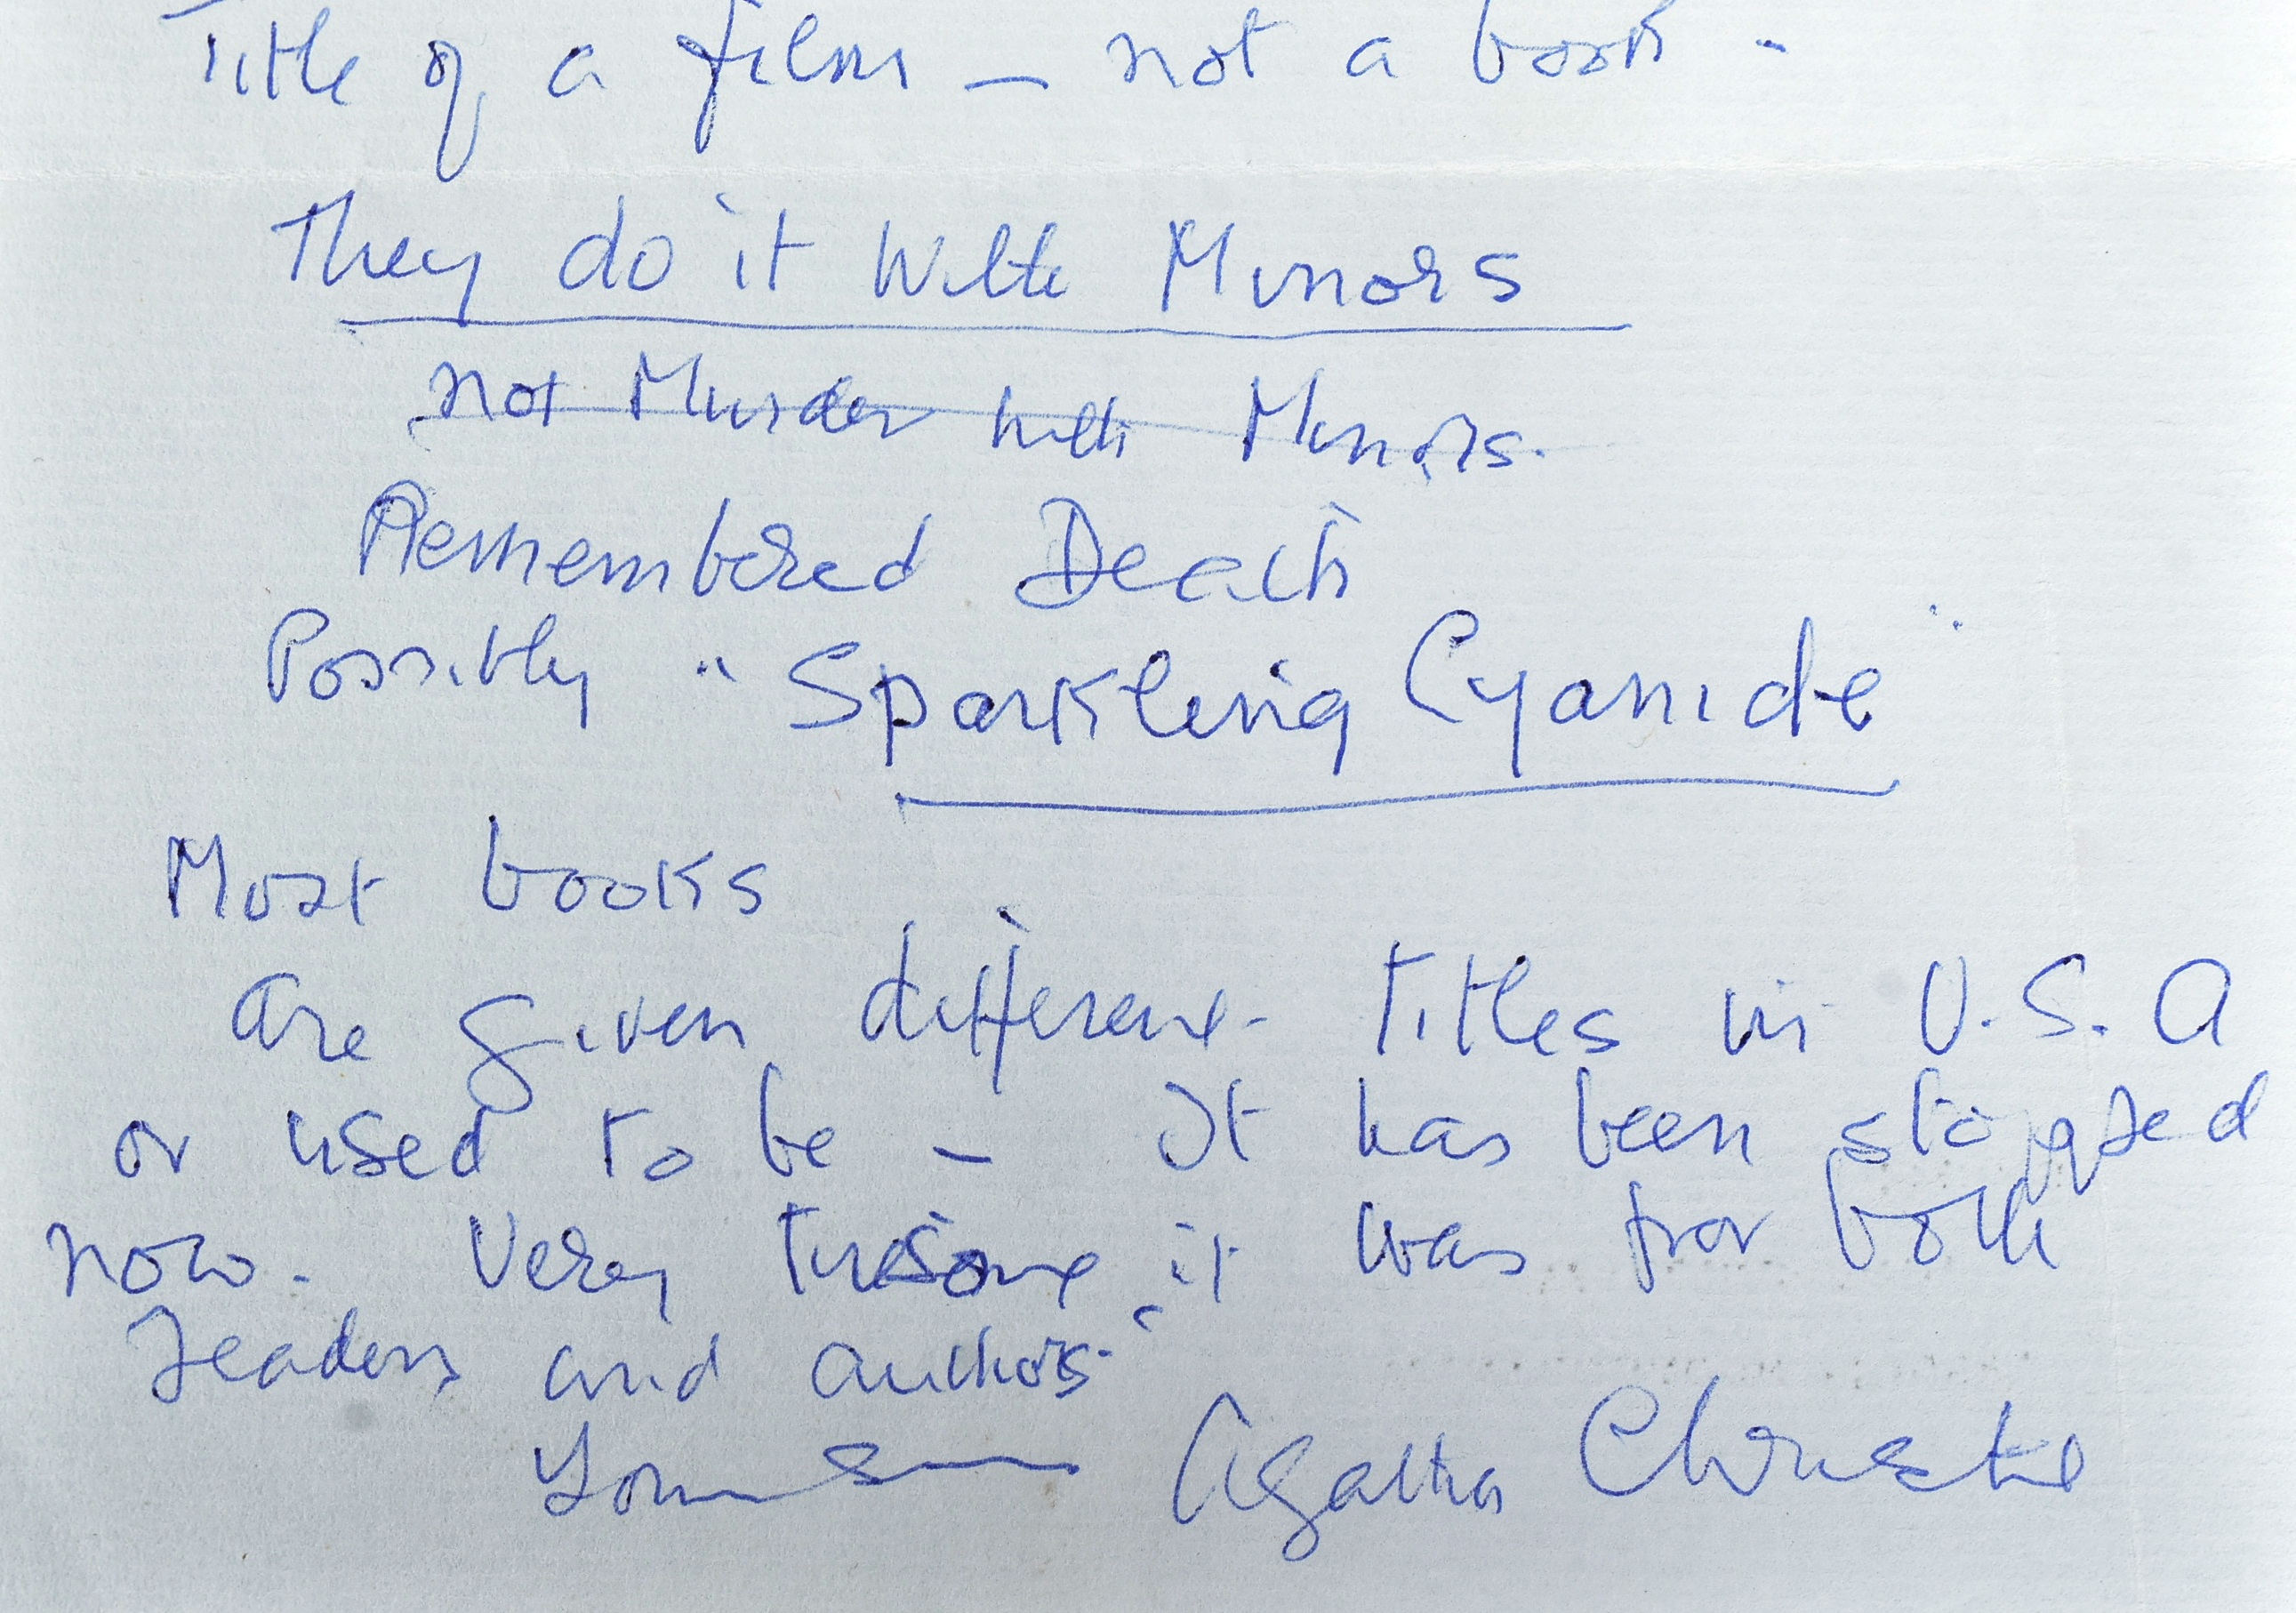 Title of a film — not a book -
They do it With Mirrors
not Murder with Mirrors.
Remembered Death
Possibly "Sparkling Cyanide"
Most books
are given different titles in U.S.A
or used to be - It has been stopped
now. Very tiresome it was for both
readers and authors.
Yours Agatha Christie